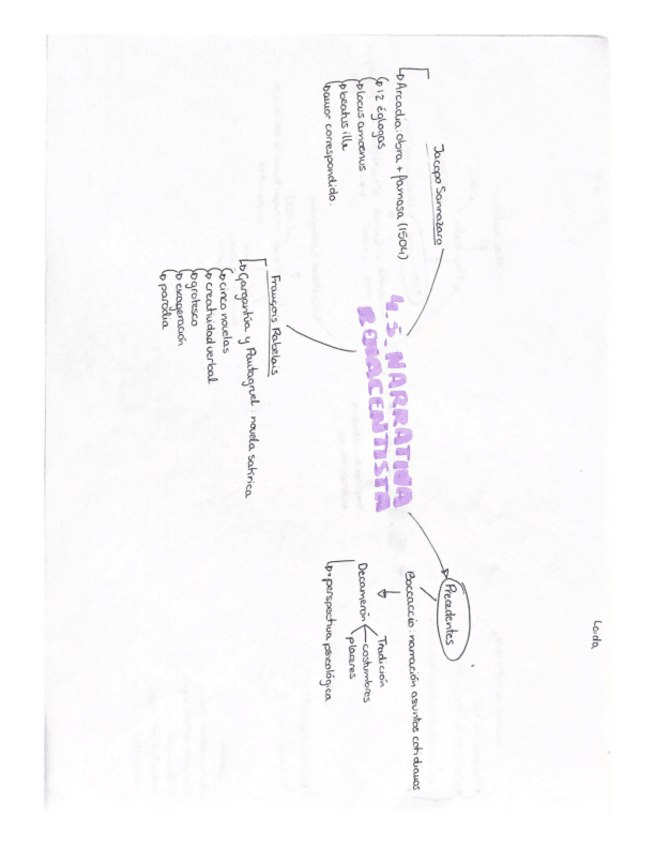 Loida
4.5. NARRATIVA
RENACENTISTA
Jacopo Sannazaro
Arcadia: obra + famosa (1504)
12 églogas
locus amoenus
beatus ille
amor correspondido.
François Rabelais
Gargantúa y Pantagruel: novela satírica
cinco novelas
creatividad verbal
grotesco
exageración
parodia
Precedentes
Boccaccio: narración asuntos cotidianos
Tradición
Decamerón
costumbres
placeres
+ perspectiva psicológica